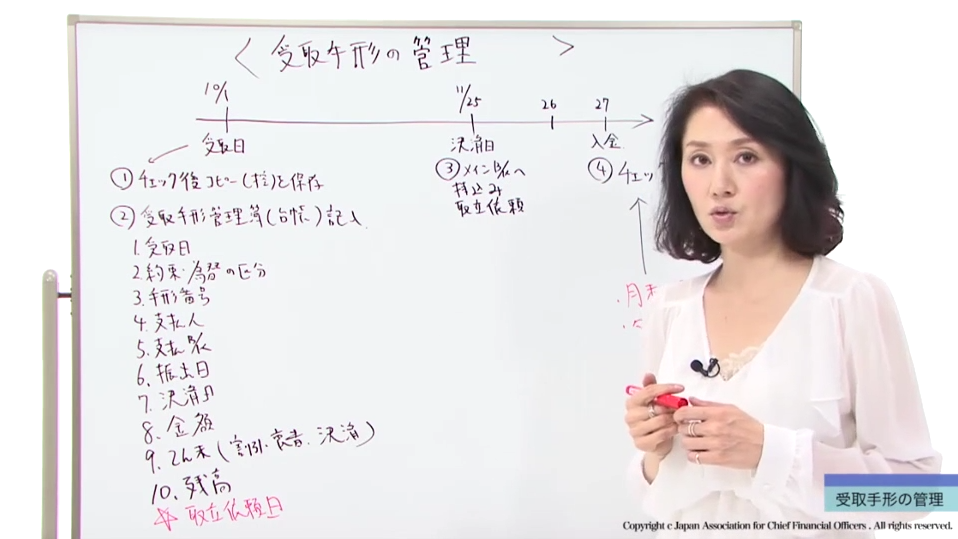 ＜受取手形の管理＞
10/1
11/25
26
27
受取日
決済日
入金
① チェック後コピー(控)を保存
② 受取手形管理簿(台帳)記入
1. 受取日
2. 約束・為替の区分
3. 手形番号
4. 支払人
5. 支払B/K
6. 振出日
7. 決済日
8. 金額
9. てん末(割引・裏書・決済)
10. 残高
☆ 取立依頼日
③ メインB/Kへ
持込み
取立依頼
④ チェック
・月末
受取手形の管理
Copyright c Japan Association for Chief Financial Officers . All rights reserved.